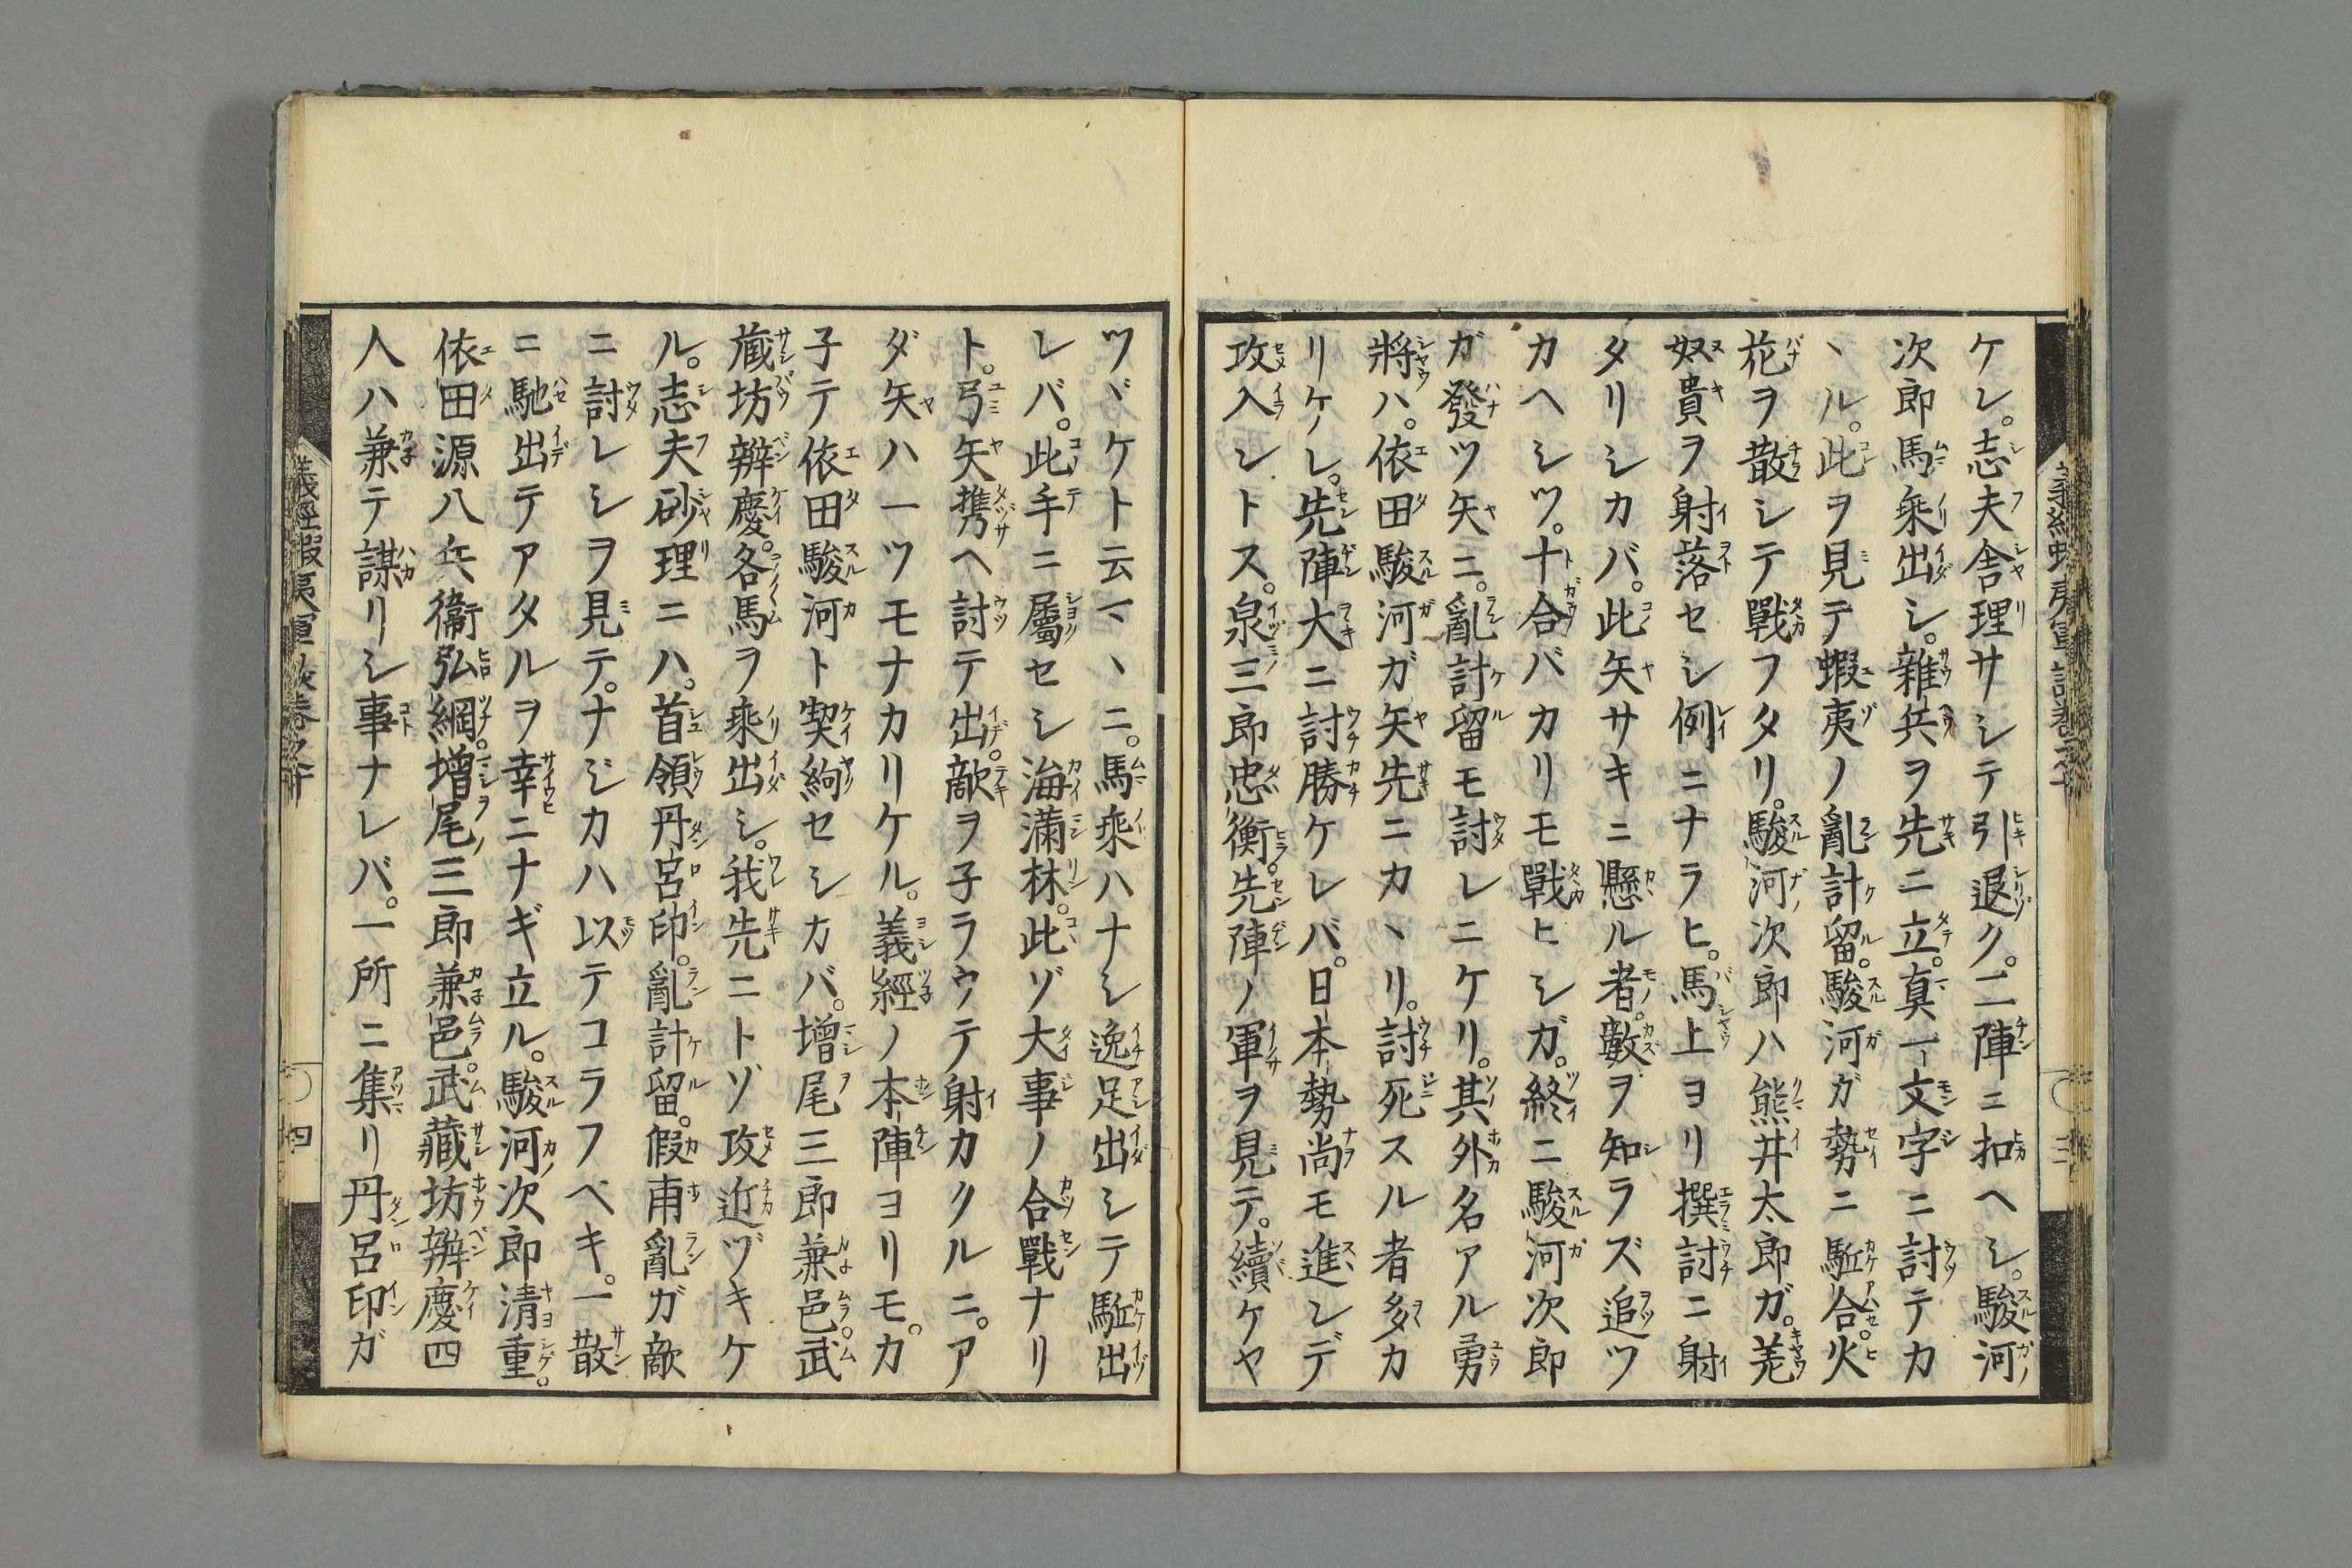 ケレ。志夫舎理サシテ引退ク。二陣ニ扣ヘシ。駿河
次郎馬乗出シ。雑兵ヲ先ニ立。真一文字ニ討テカ
ヽル。此ヲ見テ蝦夷ノ亂計留。駿河ガ勢ニ駈合。火
花ヲ散シテ戰フタリ。駿河次郎ハ熊井太郎ガ。羌
奴貴ヲ射落セシ例ニナラヒ。馬上ヨリ撰討ニ射
タリシカバ。此矢サキニ懸ル者。數ヲ知ラズ追ツ
カヘシツ。十合バカリモ戰ヒシガ。終ニ駿河次郎
ガ發ツ矢ニ。亂計留モ討レニケリ。其外名アル勇
將ハ。依田駿河ガ矢先ニカヽリ。討死スル者多カ
リケレ。先陣大ニ討勝ケレバ。日本勢尚モ進ンデ
攻入ントス。泉三郎忠衡先陣ノ軍ヲ見テ。續ケヤ
ツヾケト云マヽニ。馬乘ハナシ逸足出シテ駈出
レバ。此手ニ屬セシ海滿林。此ゾ大事ノ合戰ナリ
ト。弓矢携ヘ討テ出。敵ヲ子ラウテ射カクルニ。ア
ダ矢ハ一ツモナカリケル。義經ノ本陣ヨリモ。カ
子テ依田駿河ト契約セシカバ。增尾三郎兼邑。武
藏坊辨慶。各馬ヲ乘出シ。我先ニトゾ攻近ヅキケ
ル。志夫砂理ニハ。首領丹呂印。亂計留。假甫亂ガ敵
ニ討レシヲ見テ。ナジカハ以テコラフベキ。一散
ニ馳出テアタルヲ幸ニナギ立ル。駿河次郎清重。
依田源八兵衞弘綱。增尾三郎兼邑。武藏坊辨慶四
人ハ兼テ謀リシ事ナレバ。一所ニ集リ丹呂印ガ
三
四